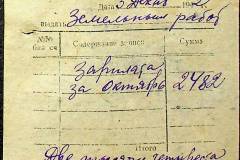 Дата 5 декаб 194
выдать Земельный работ
№№ Содержание записи Сумма
Зарплата
за октябрь 2482
Итого
Две тысячи четыреста